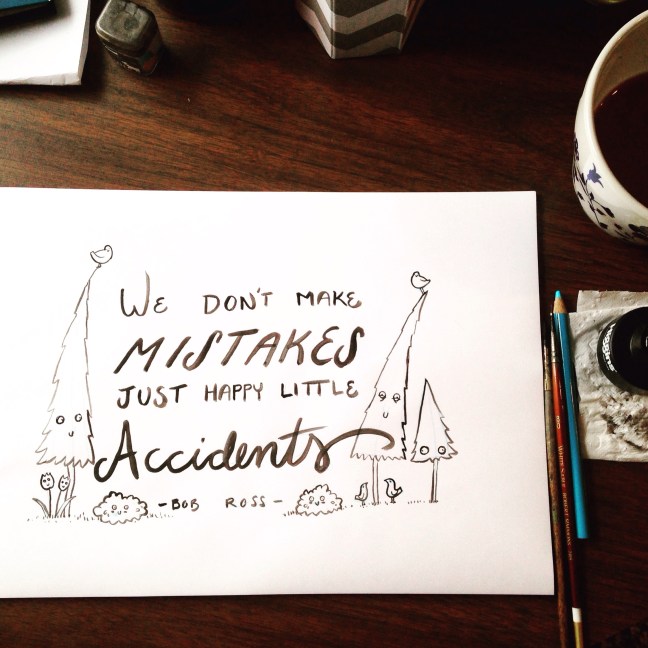 WE DON'T MAKE
MISTAKES
JUST HAPPY LITTLE
Accidents
- BOB ROSS -
HIGGINS